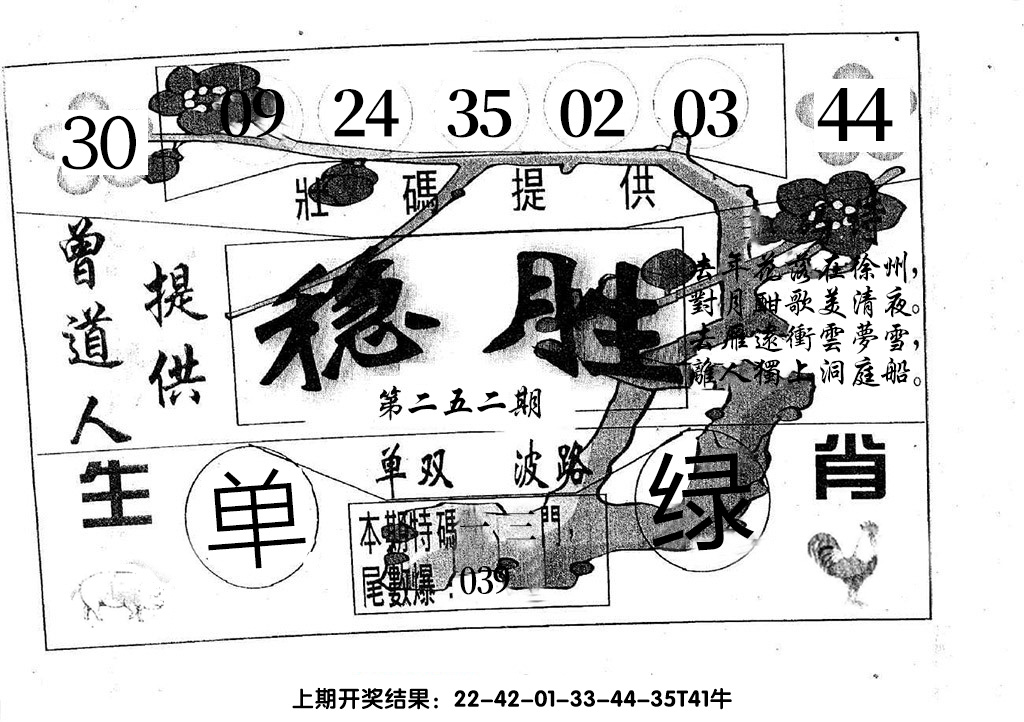 30 09 24 35 02 03 44
壯碼提供
特
曾道人
提供
稳胜
去年花落在徐州,
對月酣歌美清夜。
去雁遠衝雲夢雪,
離人獨上洞庭船。
第二五二期
单双 波路
生肖
单
绿
本期特碼一、三門,
尾數爆:039
上期开奖结果:22-42-01-33-44-35T41牛